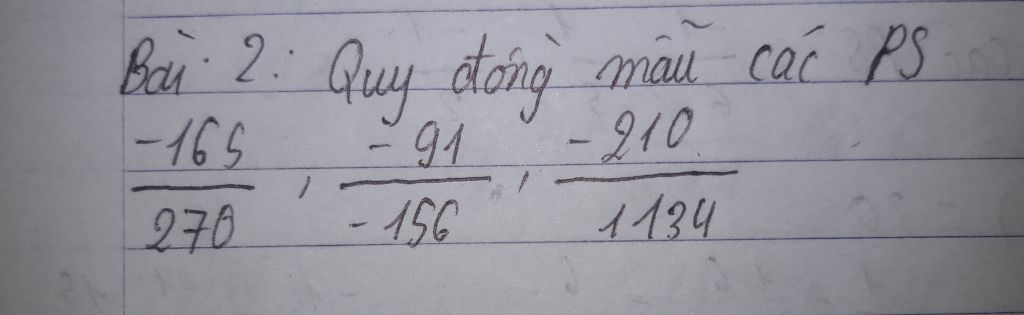 Bài 2: Quy đồng mẫu các PS
-165 , -91 , -210
270 -156 1134